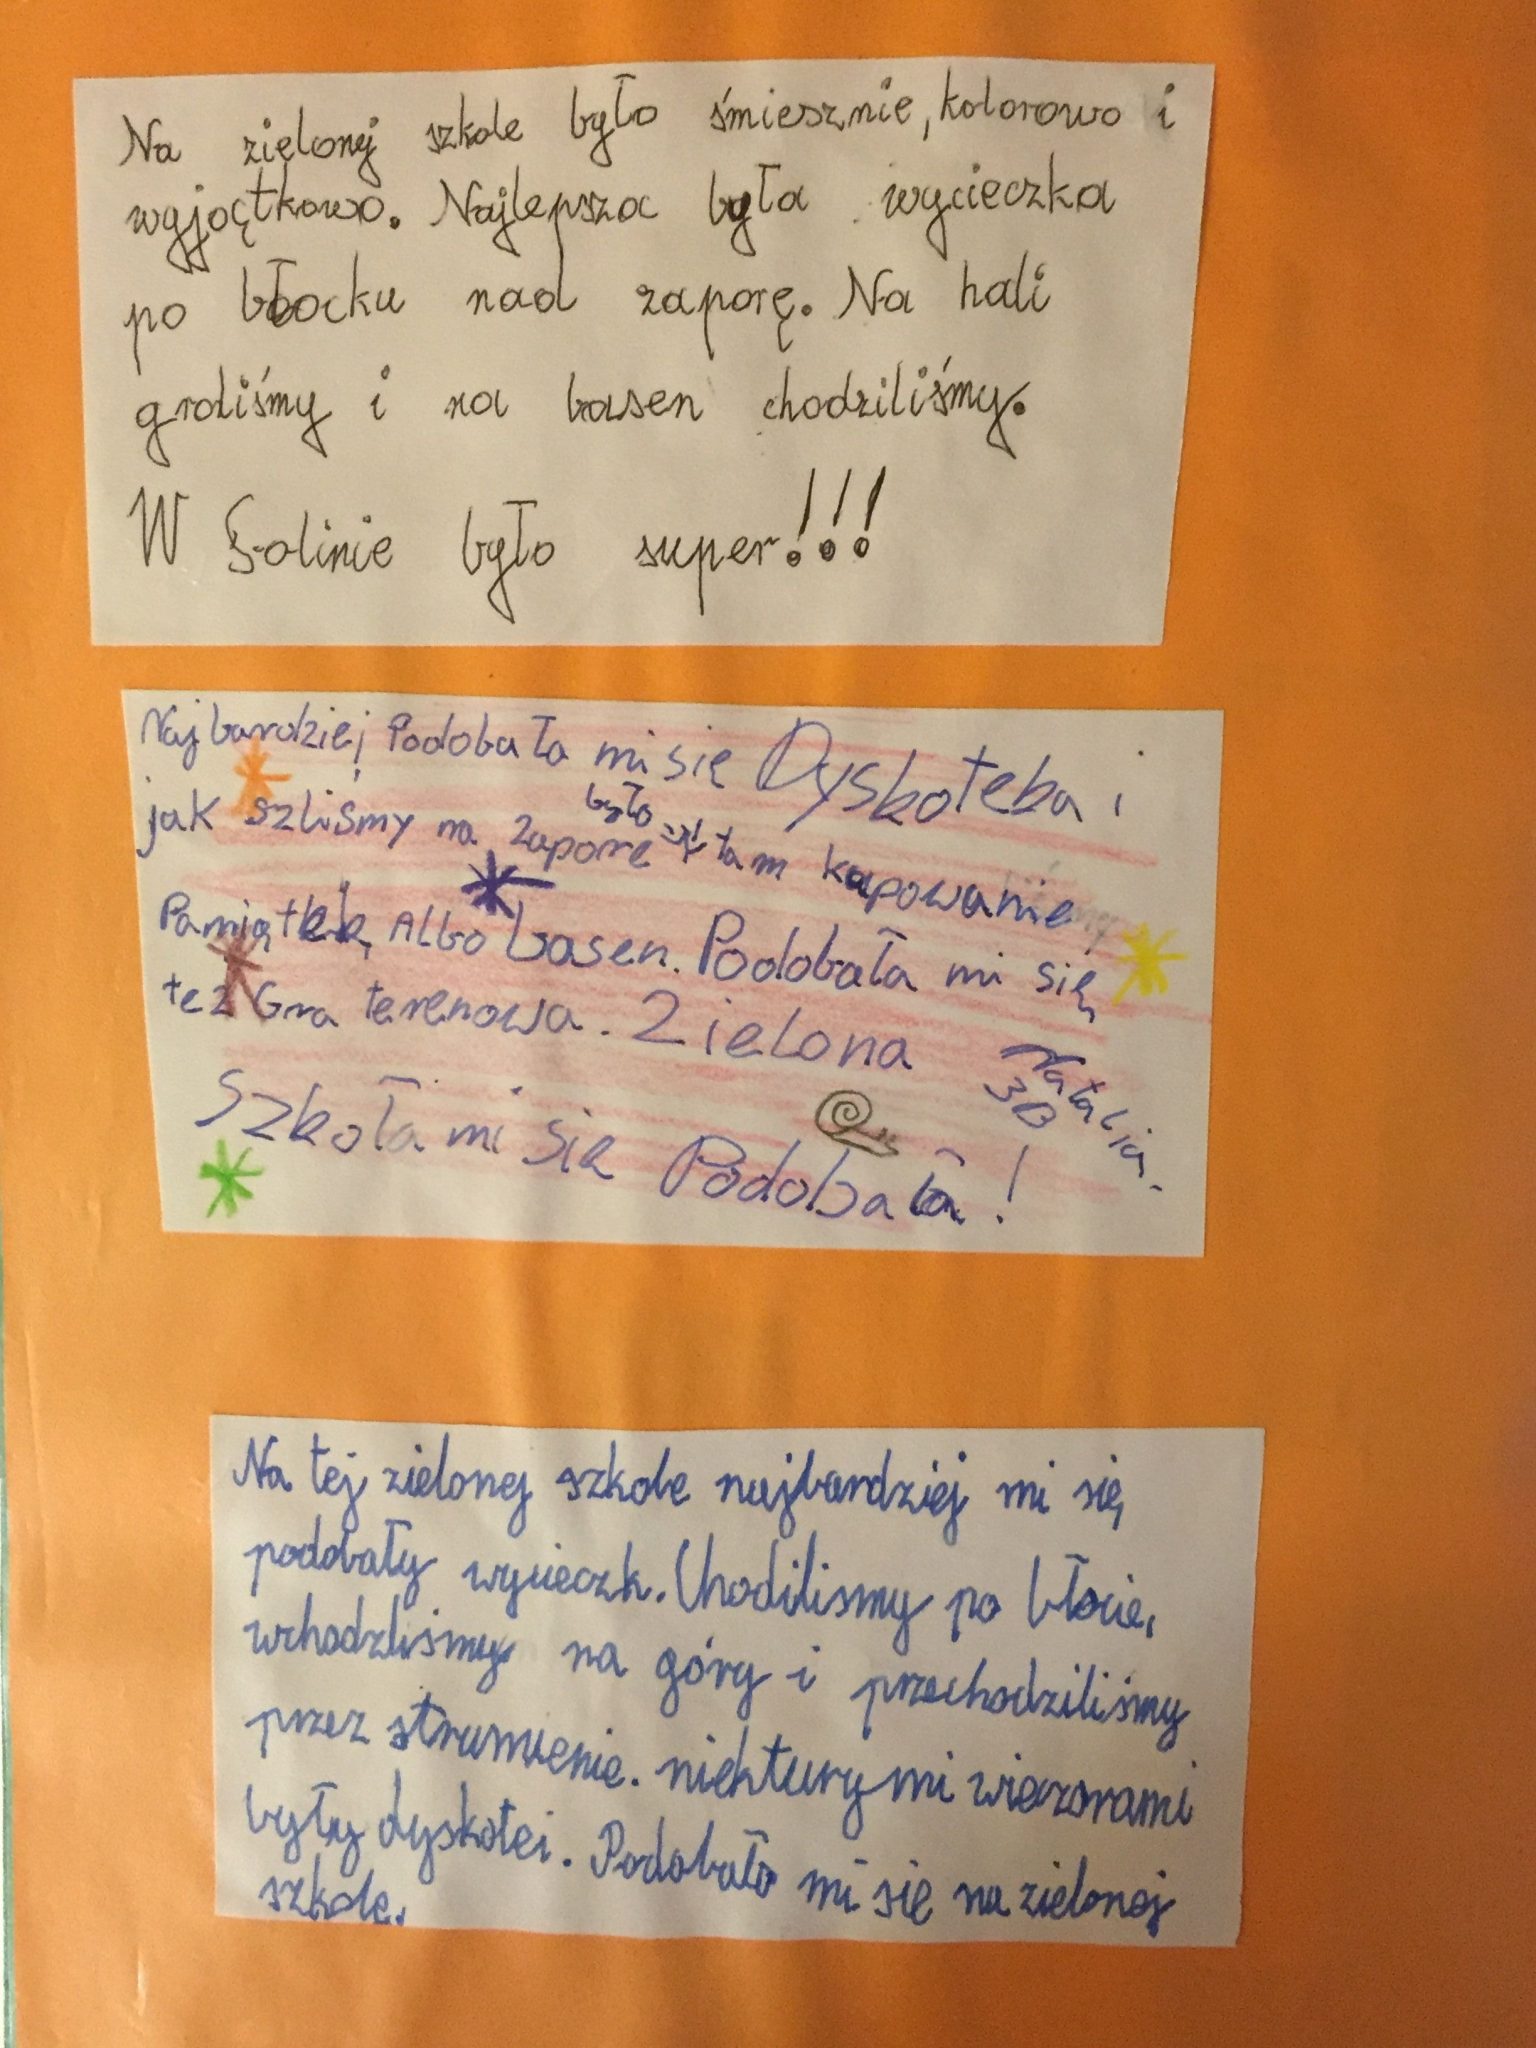 Na zielonej szkole było śmiesznie, kolorowo i
wyjątkowo. Najlepsza była wycieczka
po błocku nad zaporę. Na hali
graliśmy i na basen chodziliśmy.
W Solinie było super!!!
Najbardziej Podobała mi się Dyskoteka i
jak szliśmy na Zaporę było tam kupowanie
Pamiątek, Albo basen. Podobała mi się
też Gra terenowa. Zielona
Szkoła mi się Podobała!
Natalia.
3B
Na tej zielonej szkole najbardziej mi się
podobały wycieczk. Chodiliśmy po błocie,
wchodzliśmy na góry i przechodziliśmy
przez strumienie. niektury mi wieczorami
były dyskotei. Podobało mi się na zielonej
szkole.